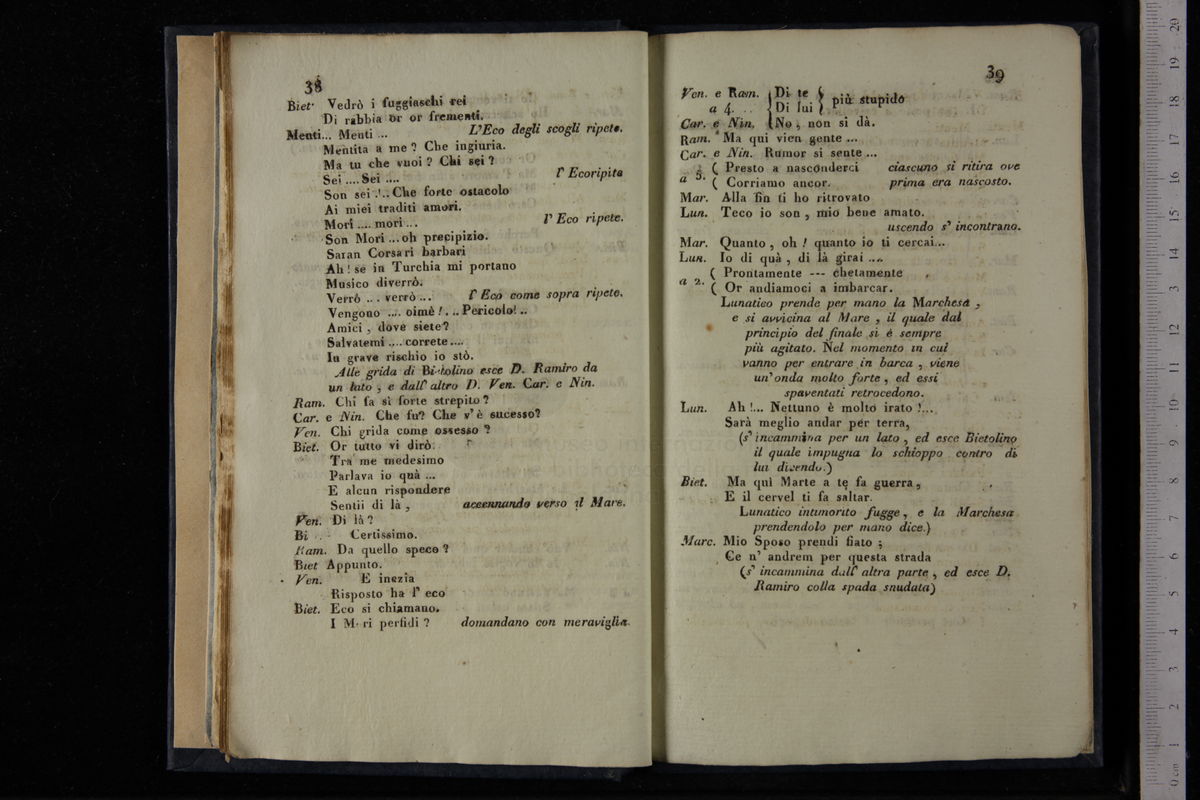 38
Biet. Vedrò i fuggiaschi rei
Di rabbia or or frementi.
Menti... Menti ... L'Eco degli scogli ripete.
Mentita a me? Che ingiuria.
Ma tu che vuoi? Chi sei?
Sei .... Sei .... l' Ecoripita
Son sei ... Che forte ostacolo
Ai miei traditi amori.
Mori .... mori ... l' Eco ripete.
Son Mori ... oh precipizio.
Saran Corsari barbari
Ah! se in Turchia mi portano
Musico diverrò.
Verrò ... verrò ... l' Eco come sopra ripete.
Vengono .... oimè! ... Pericolo! ..
Amici, dove siete?
Salvatemi .... correte ....
In grave rischio io stò.
Alle grida di Bietolino esce D. Ramiro da
un lato, e dall' altro D. Ven. Car. e Nin.
Ram. Chi fa sì forte strepito?
Car. e Nin. Che fu? Che v' è sucesso?
Ven. Chi grida come ossesso?
Biet. Or tutto vi dirò.
Tra me medesimo
Parlava io quà ...
E alcun rispondere
Sentii di là, accennando verso il Mare.
Ven. Di là?
Bi Certissimo.
Ram. Da quello speco?
Biet Appunto.
Ven. E inezia
Risposto ha l' eco
Biet. Eco si chiamano.
I M ri perfidi? domandano con meraviglia.
39
Ven. e Ram. { Di te } più stupido
a 4. .. { Di lui }
Car. e Nin. { No, non si dà.
Ram. Ma qui vien gente ...
Car. e Nin. Rumor si sente ...
a 5. ( Presto a nasconderci ciascuno si ritira ove
( Corriamo ancor. prima era nascosto.
Mar. Alla fin ti ho ritrovato
Lun. Teco io son, mio bene amato.
uscendo s' incontrano.
Mar. Quanto, oh! quanto io ti cercai...
Lun. Io di quà, di là girai ....
a 2. ( Prontamente --- chetamente
( Or andiamoci a imbarcar.
Lunatico prende per mano la Marchesa,
e si avvicina al Mare, il quale dal
principio del finale si è sempre
più agitato. Nel momento in cui
vanno per entrare in barca, viene
un' onda molto forte, ed essi
spaventati retrocedono.
Lun. Ah!... Nettuno è molto irato!...
Sarà meglio andar per terra,
(s' incammina per un lato, ed esce Bietolino
il quale impugna lo schioppo contro di
lui dicendo.)
Biet. Ma quì Marte a te fa guerra,
E il cervel ti fa saltar.
Lunatico intimorito fugge, e la Marchesa
prendendolo per mano dice.)
Marc. Mio Sposo prendi fiato;
Ce n' andrem per questa strada
(s' incammina dall' altra parte, ed esce D.
Ramiro colla spada snudata)